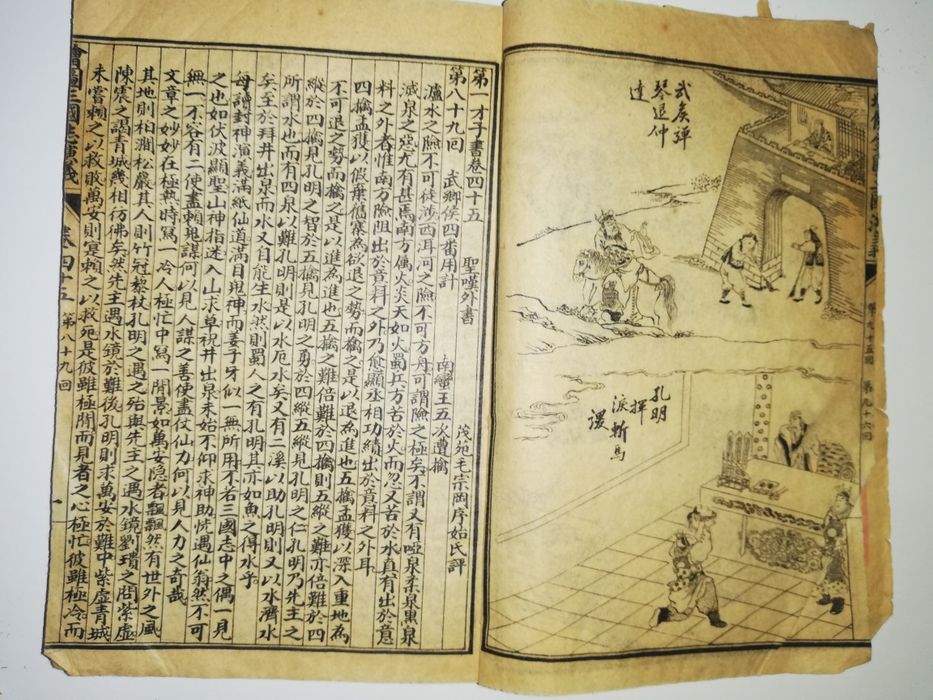 武侯彈
琴退仲
達
孔明
揮
淚斬馬
謖
第九十五回 第九十六回
第一才子書卷四十五 聖嘆外書 茂苑毛宗岡序始氏評
第八十九回 武鄉侯四番用計 南蠻王五次遭擒
瀘水之險不可徒涉西洱河之險不可方舟可謂險之極矣不謂又有啞泉柔泉黑泉
滅泉之惡尤有甚焉南方屬火炎天如火蜀兵方苦於火而忽又苦於水真有出於意
料之外者惟南方險阻出於意料之外乃愈顯丞相功績出於意料之外耳
四擒孟獲以假棄舊寨為欲退之勢而擒之是以退為進也五擒孟獲以深入重地為
不可退之勢而擒之是以進為進也五擒之難倍難於四擒則五縱之難亦倍難於四
縱於四擒見孔明之智於五擒見孔明之勇於四縱五縱見孔明之仁孔明乃先主之
所謂水也而有四泉以難孔明則是以水厄水矣又有二溪以助孔明則又以水濟水
矣至於拜井出泉而水又自能生水然則蜀人之有孔明其亦如魚之得水乎
每讀封神演義滿紙仙道滿目鬼神而姜子牙似一無所用不若三國志中之偶一見
之也如伏波顯聖山神指迷入山求草視井出泉未始不仰求神助恍遇仙翁然不可
無一不容有二使盡賴鬼謀何以見人謀之善使盡仗仙力何以見人力之奇哉
文章之妙妙在極熱時寫一冷人極忙中寫一閒景如萬安隱者飄飄然有世外之風
其地則柏澗松嚴其人則竹冠藜杖孔明之遇之殆與先主之遇水鏡劉璝之問紫虛
陳震之謁青城幾相彷彿矣然先主遇水鏡於難後孔明則求萬安於難中紫虛青城
未嘗賴之以救敗萬安則寔賴之以救死是彼雖極閒而見者之心極忙彼雖極冷而
繪圖三國志演義 卷四十五 第八十九回 一